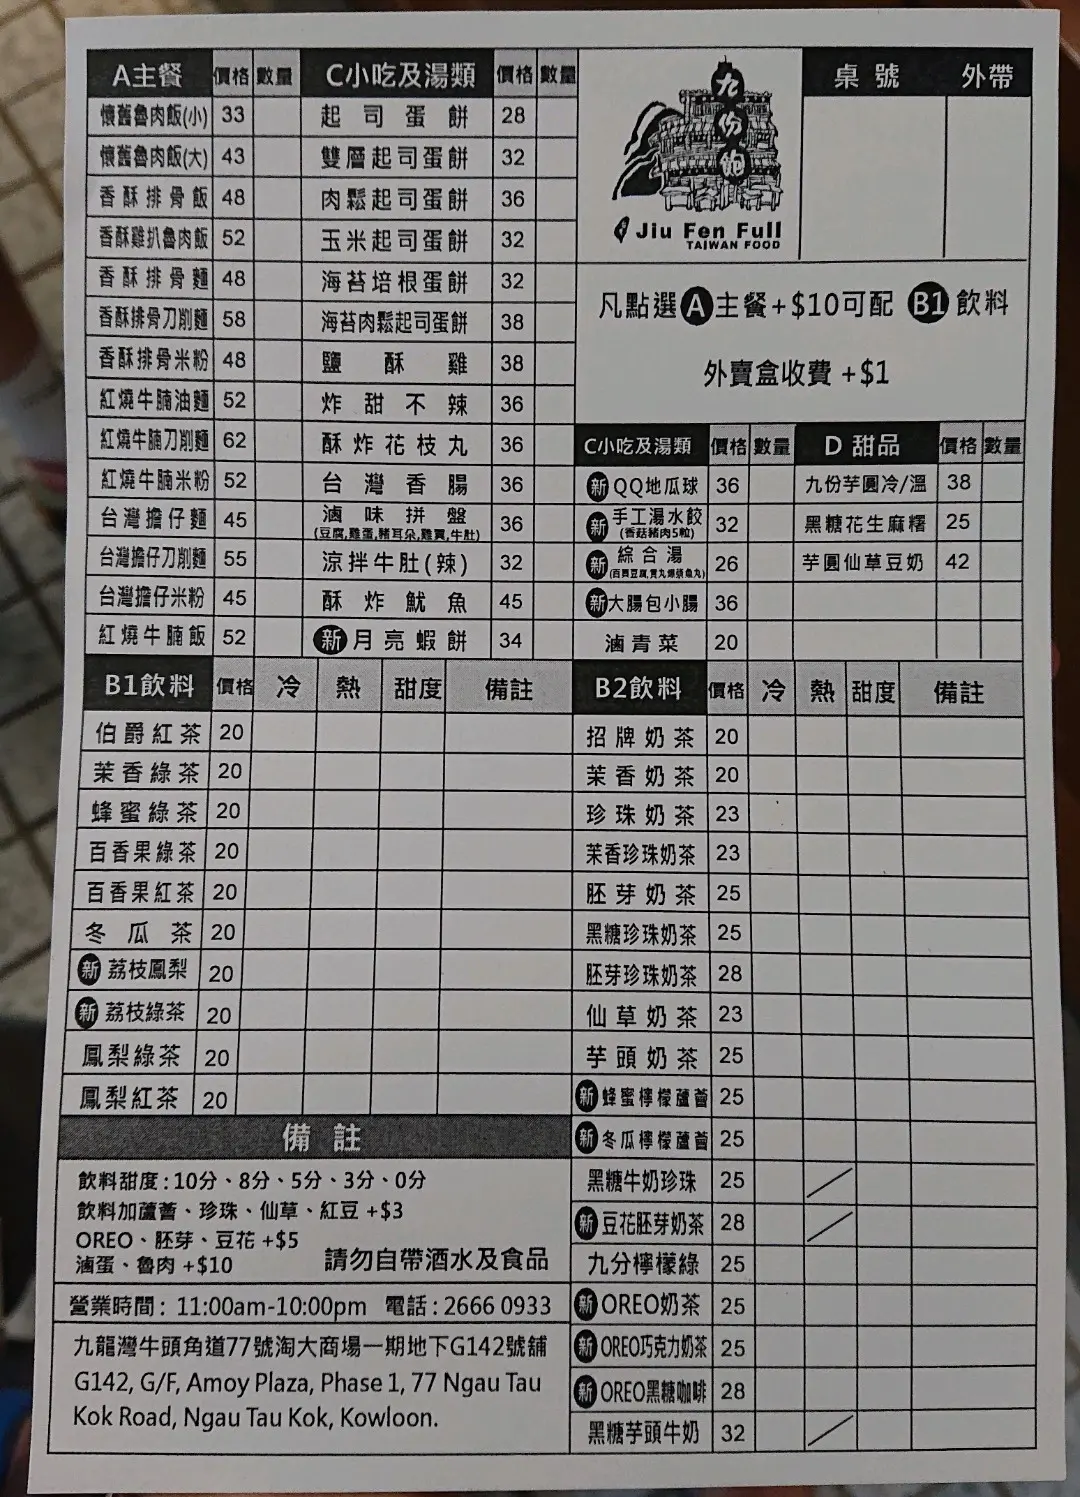 A主餐 價格 數量
懷舊魯肉飯(小) 33
懷舊魯肉飯(大) 43
香酥排骨飯 48
香酥雞扒魯肉飯 52
香酥排骨麵 48
香酥排骨刀削麵 58
香酥排骨米粉 48
紅燒牛腩油麵 52
紅燒牛腩刀削麵 62
紅燒牛腩米粉 52
台灣擔仔麵 45
台灣擔仔刀削麵 55
台灣擔仔米粉 45
紅燒牛腩飯 52
C小吃及湯類 價格 數量
起司蛋餅 28
雙層起司蛋餅 32
肉鬆起司蛋餅 36
玉米起司蛋餅 32
海苔培根蛋餅 32
海苔肉鬆起司蛋餅 38
鹽酥雞 38
炸甜不辣 36
酥炸花枝丸 36
台灣香腸 36
滷味拼盤 36
(豆腐,雞蛋,豬耳朵,雞翼,牛肚)
涼拌牛肚(辣) 32
酥炸魷魚 45
新 月亮蝦餅 34
九份飽
Jiu Fen Full
TAIWAN FOOD
桌號 外帶
凡點選A主餐+$10可配 B1飲料
外賣盒收費+$1
C小吃及湯類 價格 數量
新 QQ地瓜球 36
新 手工湯水餃 32
(香菇豬肉5粒)
新 綜合湯 26
新 大腸包小腸 36
滷青菜 20
D 甜品 價格 數量
九份芋圓冷/溫 38
黑糖花生麻糬 25
芋圓仙草豆奶 42
B1飲料 價格 冷 熱 甜度 備註
伯爵紅茶 20
茉香綠茶 20
蜂蜜綠茶 20
百香果綠茶 20
百香果紅茶 20
冬瓜茶 20
新 荔枝鳳梨 20
新 荔枝綠茶 20
鳳梨綠茶 20
鳳梨紅茶 20
備註
飲料甜度:10分、8分、5分、3分、0分
飲料加蘆薈、珍珠、仙草、紅豆+$3
OREO、胚芽、豆花+$5
滷蛋、魯肉+$10 請勿自帶酒水及食品
營業時間: 11:00am-10:00pm 電話:2666 0933
九龍灣牛頭角道77號淘大商場一期地下G142號舖
G142, G/F, Amoy Plaza, Phase 1, 77 Ngau Tau
Kok Road, Ngau Tau Kok, Kowloon.
B2飲料 價格 冷 熱 甜度 備註
招牌奶茶 20
茉香奶茶 20
珍珠奶茶 23
茉香珍珠奶茶 23
胚芽奶茶 25
黑糖珍珠奶茶 25
胚芽珍珠奶茶 28
仙草奶茶 23
芋頭奶茶 25
新 蜂蜜檸檬蘆薈 25
新 冬瓜檸檬蘆薈 25
黑糖牛奶珍珠 25
新 豆花胚芽奶茶 28
九分檸檬綠 25
新 OREO奶茶 25
新 OREO巧克力奶茶 25
新 OREO黑糖咖啡 28
黑糖芋頭牛奶 32